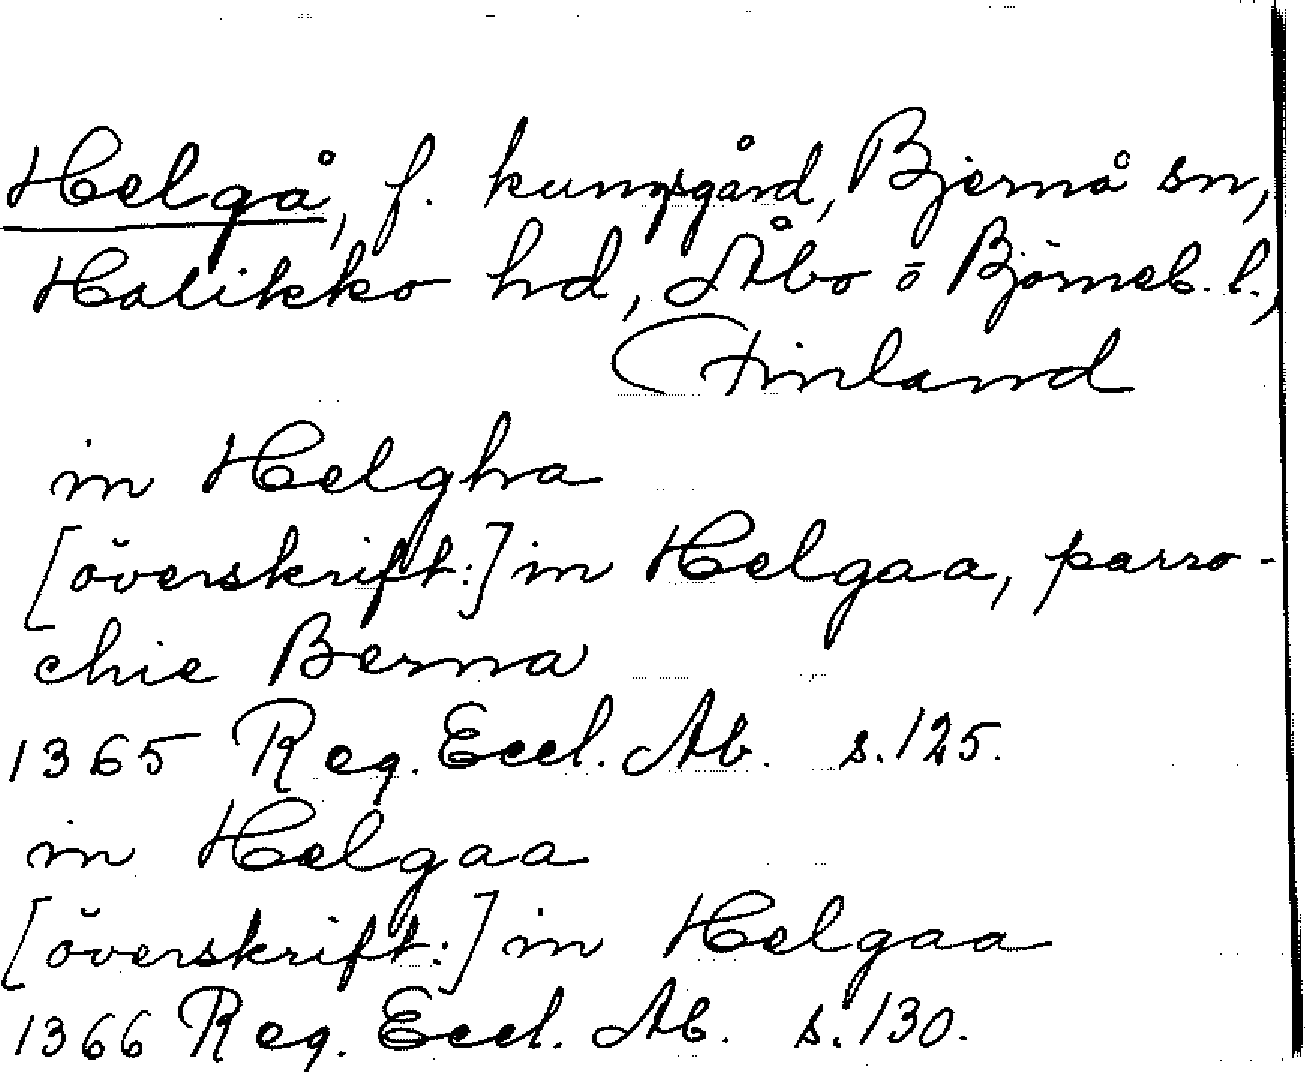 Helgå, f. kungsgård, Bjernå sn,
Halikko hd, Åbo o Björneb. l.,
Finland
in Helgha
[överskrift:] in Helgaa, parro-
chie Berna
1365 Reg. Eccl. Ab. s. 125.
in Helgaa
[överskrift:] in Helgaa
1366 Reg. Eccl. Ab. s. 130.